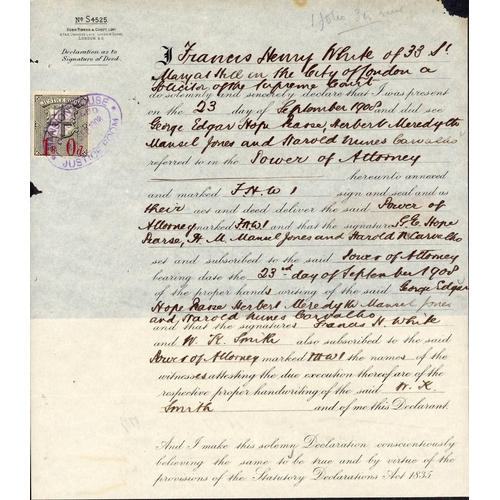 No S4525.
LONDON E.C.
Declaration as to
Signature of Deed.
I Francis Henry White of 33 St
Mary at Hill in the City of London a
Solicitor of the Supreme Court
do solemnly and sincerely declare that I was present
on the 23 day of September 1908 and did see
George Edgar Hope Pearse, Herbert Meredyth
Mansel Jones and Harold Nunes Carvalho
referred to in the Power of Attorney
hereunto annexed
and marked F.H.W 1 sign and seal and as
their act and deed deliver the said Power of
Attorney marked F.H.W1 and that the signatures G.E. Hope
Pearse, H. M. Mansel Jones and Harold N. Carvalho
set and subscribed to the said Power of Attorney
bearing date the 23rd day of September 1908
of the proper hands writing of the said George Edgar
Hope Pearse Herbert Meredyth Mansel Jones
and Harold Nunes Carvalho
and that the signatures Francis H. White
and W. K. Smith also subscribed to the said
Power of Attorney marked FHW1 the names of the
witnesses attesting the due execution thereof are of the
respective proper handwriting of the said W. K
Smith and of me this Declarant.
And I make this solemn Declaration conscientiously
believing the same to be true and by virtue of the
provisions of the Statutory Declarations Act 1835
JUSTICE ROOM
1s. 0d.